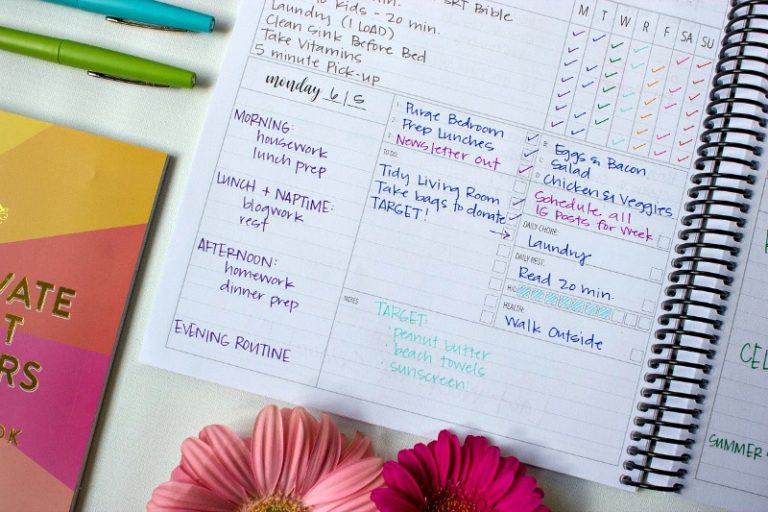 kids - 20 min.
SRT Bible
Laundry (1 LOAD)
Clean Sink Before Bed
Take Vitamins
5 minute Pick-up
M T W R F SA SU
monday 6|5
MORNING:
housework
lunch prep
LUNCH + NAPTIME:
blogwork
rest
AFTERNOON:
homework
dinner prep
EVENING ROUTINE
1. Purge Bedroom
2. Prep Lunches
3. Newsletter out
TO DO:
Tidy Living Room
Take bags to donate
TARGET!
B: Eggs & Bacon
Salad
Chicken & Veggies
Schedule all
16 Posts for Week
DAILY CHORE:
Laundry
DAILY REST:
Read 20 min.
H2O:
HEALTH:
Walk Outside
NOTES
TARGET:
· peanut butter
· beach towels
· sunscreen
VATE
T
RS
OK
CEL
SUMMER